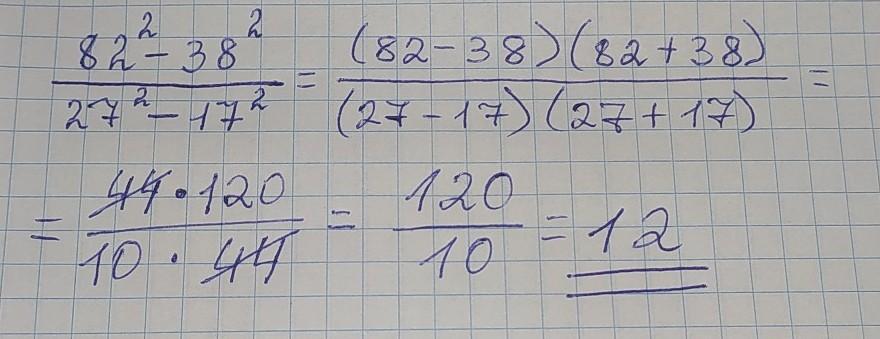 82² - 38² / 27² - 17² = (82 - 38)(82 + 38) / (27 - 17)(27 + 17) =
= 44 · 120 / 10 · 44 = 120 / 10 = 12